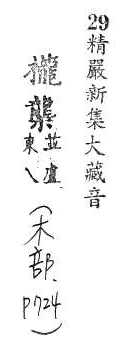 29精嚴新集大藏音
櫳
並盧
東乀
(木部.
p724)